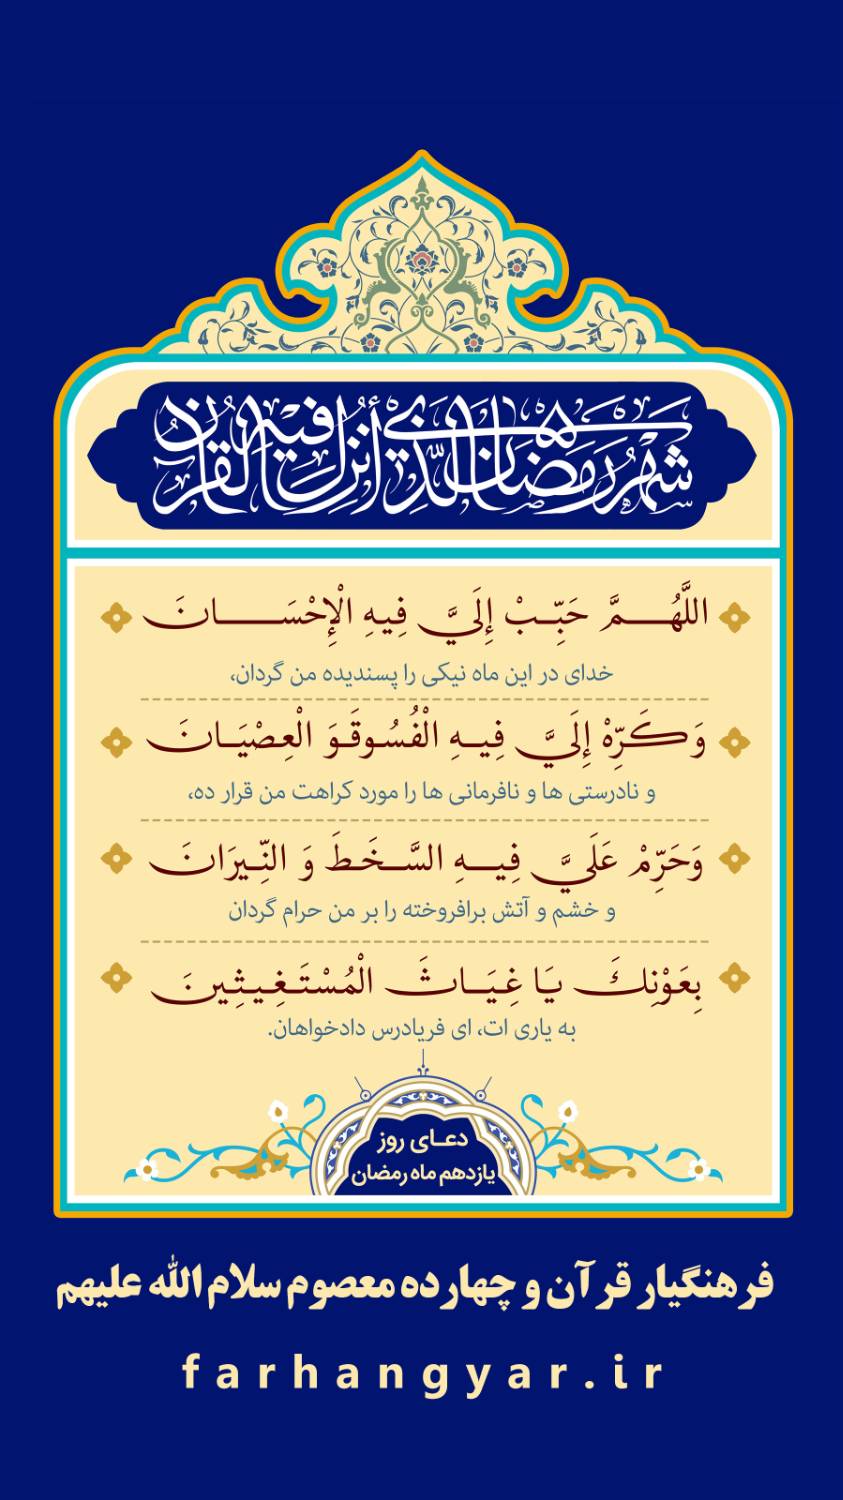 شَهْرُ رَمَضَانَ الَّذِي أُنْزِلَ فِيهِ الْقُرْآنُ
اللَّهُمَّ حَبِّبْ إِلَيَّ فِيهِ الْإِحْسَانَ
خدای در این ماه نیکی را پسندیده من گردان،
وَكَرِّهْ إِلَيَّ فِيهِ الْفُسُوقَوَ الْعِصْيَانَ
و نادرستی ها و نافرمانی ها را مورد کراهت من قرار ده،
وَحَرِّمْ عَلَيَّ فِيهِ السَّخَطَ وَ النِّيرَانَ
و خشم و آتش برافروخته را بر من حرام گردان
بِعَوْنِكَ يَا غِيَاثَ الْمُسْتَغِيثِينَ
به یاری ات، ای فریادرس دادخواهان.
دعای روز
یازدهم ماه رمضان
فرهنگیار قرآن و چهارده معصوم سلام الله علیهم
farhangyar.ir